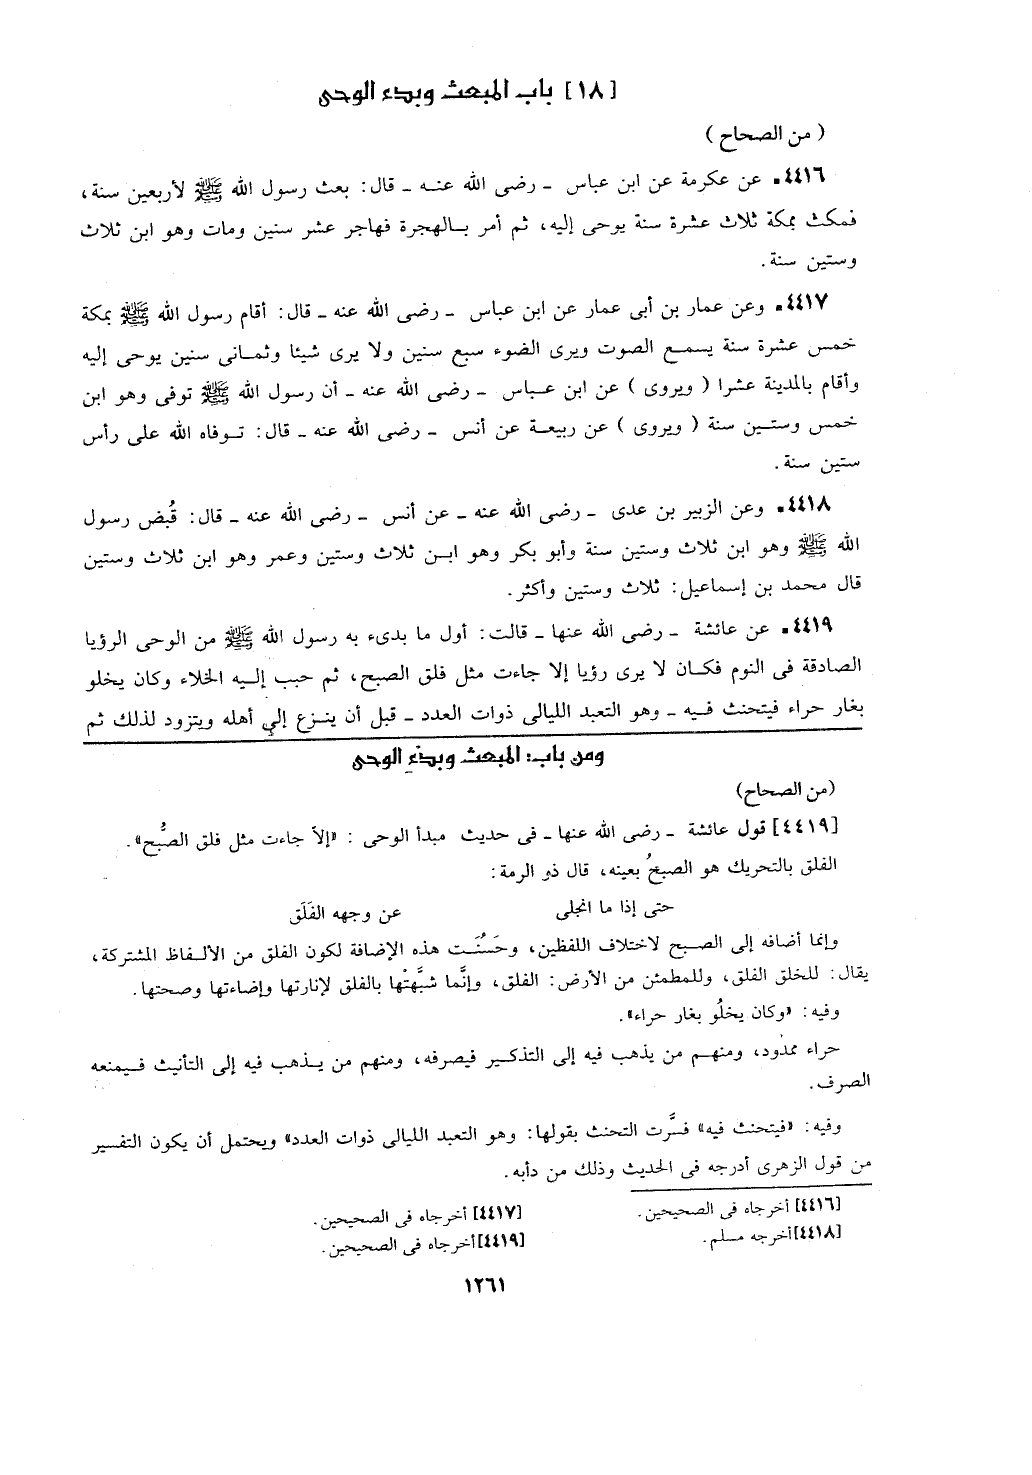 [١٨] باب المبعث وبدء الوحى
( من الصحاح )
٤٤١٦. عن عكرمة عن ابن عباس ـ رضى الله عنه ـ قال: بعث رسول الله ﷺ لأربعين سنة،
فمكث بمكة ثلاث عشرة سنة يوحى إليه، ثم أمر بالهجرة فهاجر عشر سنين ومات وهو ابن ثلاث
وستين سنة.
٤٤١٧. وعن عمار بن أبى عمار عن ابن عباس ـ رضى الله عنه ـ قال: أقام رسول الله ﷺ بمكة
خمس عشرة سنة يسمع الصوت ويرى الضوء سبع سنين ولا يرى شيئا وثمانى سنين يوحى إليه
وأقام بالمدينة عشرا ( ويروى ) عن ابن عباس ـ رضى الله عنه ـ أن رسول الله ﷺ توفى وهو ابن
خمس وستين سنة ( ويروى ) عن ربيعة عن أنس ـ رضى الله عنه ـ قال: توفاه الله على رأس
ستين سنة.
٤٤١٨. وعن الزبير بن عدى ـ رضى الله عنه ـ عن أنس ـ رضى الله عنه ـ قال: قُبض رسول
الله ﷺ وهو ابن ثلاث وستين سنة وأبو بكر وهو ابن ثلاث وستين وعمر وهو ابن ثلاث وستين
قال محمد بن إسماعيل: ثلاث وستين وأكثر.
٤٤١٩. عن عائشة ـ رضى الله عنها ـ قالت: أول ما بدىء به رسول الله ﷺ من الوحى الرؤيا
الصادقة فى النوم فكان لا يرى رؤيا إلا جاءت مثل فلق الصبح، ثم حبب إليه الخلاء وكان يخلو
بغار حراء فيتحنث فيه ـ وهو التعبد الليالى ذوات العدد ـ قبل أن ينزع إلي أهله ويتزود لذلك ثم
ومن باب: المبعث وبدْءِ الوحى
(من الصحاح)
[٤٤١٩] قول عائشة ـ رضى الله عنها ـ فى حديث مبدأ الوحى : «إلاّ جاءت مثل فلق الصُّبح».
الفلق بالتحريك هو الصبحُ بعينه، قال ذو الرمة:
حتى إذا ما انجلى عن وجهه الفَلَق
وإنما أضافه إلى الصبح لاختلاف اللفظين، وحَسُنَت هذه الإضافة لكون الفلق من الألفاظ المشتركة،
يقال: للخلق الفلق، وللمطمئن من الأرض: الفلق، وإنَّما شبَّهتْها بالفلق لإنارتها وإضاءتها وصحتها.
وفيه: «وكان يخلُو بغار حراء».
حراء ممدود، ومنهم من يذهب فيه إلى التذكير فيصرفه، ومنهم من يذهب فيه إلى التأنيث فيمنعه
الصرف.
وفيه: «فيتحنث فيه» فسَّرت التحنث بقولها: وهو التعبد الليالى ذوات العدد» ويحتمل أن يكون التفسير
من قول الزهرى أدرجه فى الحديث وذلك من دأبه.
[٤٤١٦] أخرجاه فى الصحيحين. [٤٤١٧] أخرجاه فى الصحيحين.
[٤٤١٨] أخرجه مسلم. [٤٤١٩] أخرجاه فى الصحيحين.
١٢٦١